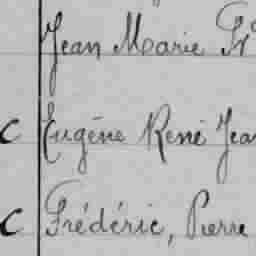 Jean Marie Fr
C Eugène René Jean
C Frédéric, Pierre